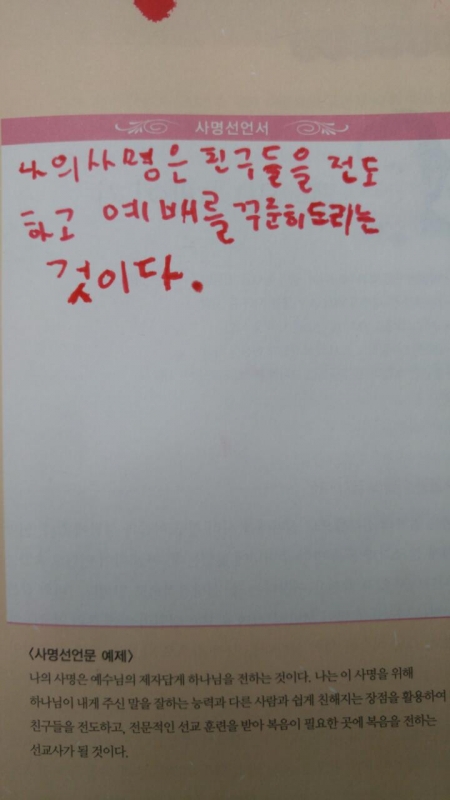 사명선언서
나의 사명은 친구들을 전도
하고 예배를 꾸준히 드리는
것이다.
<사명선언문 예제>
나의 사명은 예수님의 제자답게 하나님을 전하는 것이다. 나는 이 사명을 위해
하나님이 내게 주신 말을 잘하는 능력과 다른 사람과 쉽게 친해지는 장점을 활용하여
친구들을 전도하고, 전문적인 선교 훈련을 받아 복음이 필요한 곳에 복음을 전하는
선교사가 될 것이다.